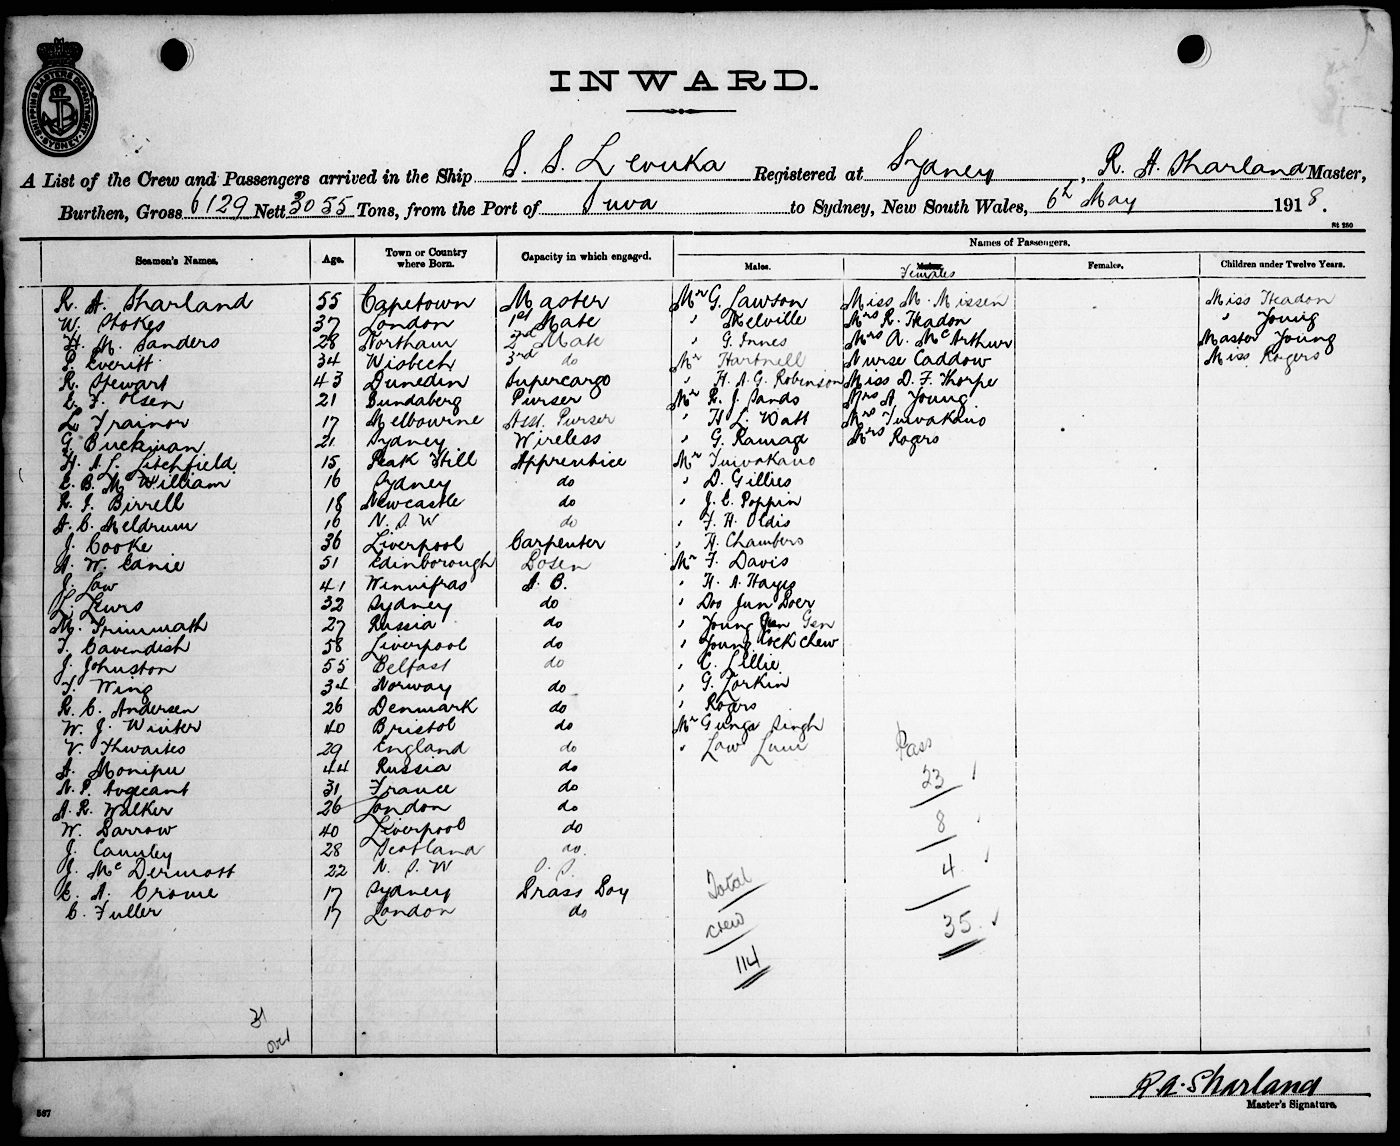 SHIPPING MASTERS DEPARTMENT SYDNEY
INWARD.
A List of the Crew and Passengers arrived in the Ship S. S. Levuka Registered at Sydney, R. A. Sharland Master,
Burthen, Gross 6129 Nett 3055 Tons, from the Port of Suva to Sydney, New South Wales, 6th May 1918.
St 280
Seamen's Names. Age. Town or Country where Born. Capacity in which engaged. Names of Passengers.
Males. Females Females. Children under Twelve Years.
R. A. Sharland 55 Capetown Master Mr G. Lawson Miss M. Missen Miss Headon
W. Stokes 37 London 1st Mate " Melville Mrs R. Headon " Young
H. M. Sanders 28 Northam 2nd Mate " G. Innes Mrs A. McArthur Master Young
P. Everitt 34 Wisbech 3rd do Mr Hartnell Nurse Caddow Miss Rogers
R. Stewart 43 Dunedin Supercargo " H. A. G. Robinson Miss D. F. Thorpe
E. F. Olsen 21 Bundaberg Purser Mr R. J. Sands Mrs A. Young
L. Trainor 17 Melbourne Asst. Purser " H. L. Watt Mrs Tuivakano
G. Buckman 21 Sydney Wireless " G. Ramage Mrs Rogers
H. A. L. Litchfield 15 Peak Hill Apprentice Mr Tuivakano
E. B. McWilliam 16 Sydney do " D. Gillies
R. J. Birrell 18 Newcastle do " J. E. Poppin
A. C. Meldrum 16 N. S. W do " F. H. Oldis
J. Cooke 36 Liverpool Carpenter " H. Chambers
A. W. Canie 51 Edinborough Bosen Mr F. Davis
J. Law 41 Winnifras A. B. " H. A. Hayes
L. Lewis 32 Sydney do " Doo Jun Doer
M. Trimmath 27 Russia do " Young Gen
T. Cavendish 58 Liverpool do " Young Cock Chew
J. Johnston 55 Belfast do " C. Lillie
T. Wing 34 Norway do " G. Lorkin
R. C. Andersen 26 Denmark do " Rogers
W. J. Winter 40 Bristol do Mr Gunga Singh
V. Thwaites 29 England do " Low Lum
A. Monipu 44 Russia do
N. P. Avgeant 31 France do
A. R. Walker 26 London do
W. Barrow 40 Liverpool do
J. Cannley 28 Scotland do.
J. McDermott 22 N. S. W O. S.
E. A. Crowe 17 Sydney Brass Boy
C. Fuller 17 London do
Pass
23
8
4
35
Total
crew
114
31
over
R. A. Sharland
Master's Signature.
567